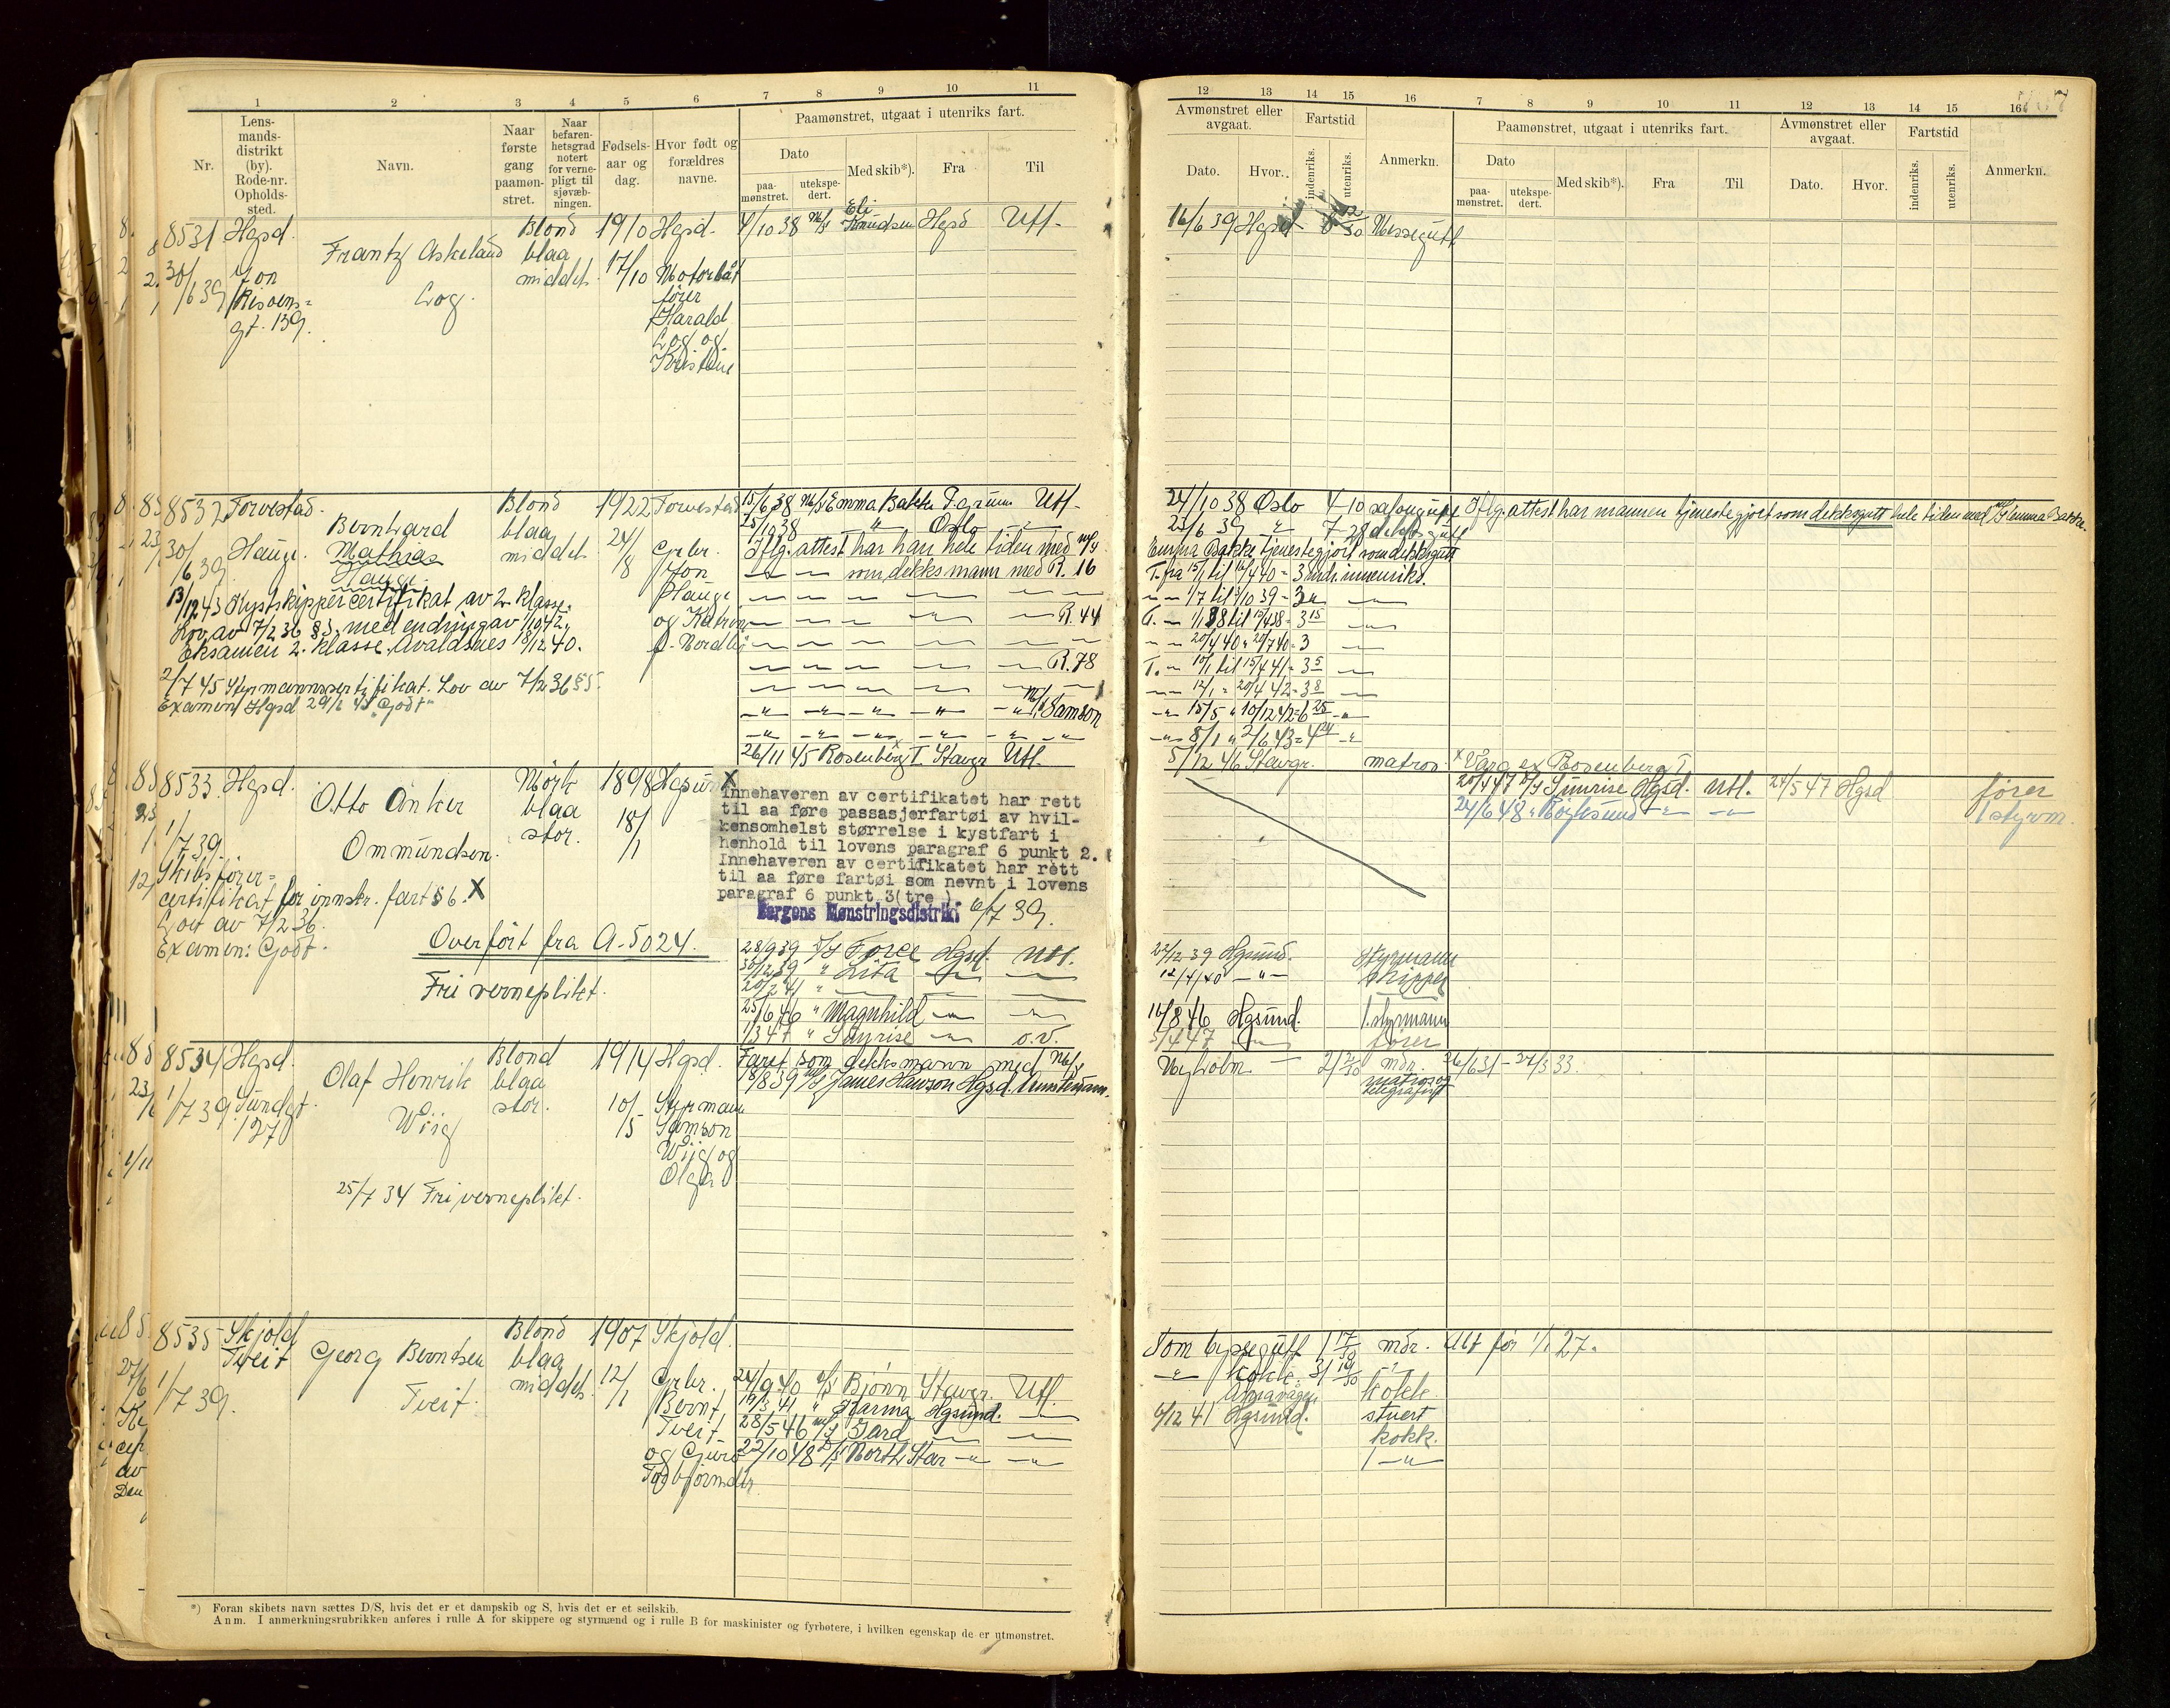 1 2 3 4 5 6 7 8 9 10 11
Nr.
Lens-
mands-
distrikt
(by).
Rode-nr.
Opholds-
sted.
Navn.
Naar
første
gang
paamøn-
stret.
Naar
befaren-
hetsgrad
notert
for verne-
pligt til
sjøvæb-
ningen.
Fødsels-
aar og
dag.
Hvor født og
forældres
navne.
Paamønstret, utgaat i utenriks fart.
Dato
paa-
mønstret.
utekspe-
dert.
Med skib*).
Fra
Til
8531 Hgsd. Frantz Askeland Blond 1910 Hgsd. 4/10 38 M/S Eli Knudsen Hgsd Utl.
30/6 39 Jon blaa 17/10 Motorbåt
Risoens= Log. middels fører
gt. 139. Harald
Log og
Kristine
8532 Torvestad. Bernhard Blond 1922 Torvestad 15/6 38 M/S Emma Bakke Utl.
25/10 38 " Oslo
30/6 39 Hauge. Mathias blaa 24/8 Grbr. Iflg. attest har han hele tiden med M/S
Hauge middels Jon som dekksmann med R. 16
13/12 43 Kystskippercertifikat av 2. klasse. Hauge
Lov av 7/2 36 § 3, med endring av 1/10 42. og Katrine R. 44
Eksamen 2. klasse. Avaldsnes 18/12 40. f. Nordbö
R. 78
2/7 45 Styrmannscertifikat. Lov av 7/2 36 § 5.
Examen Hgsd 29/6 45 "Godt" M/S Samson
26/11 45 Rosenberg I Stavgr. Utl.
8533 Hgsd. Otto Anker Mörk 1898 Hgsund
1/7 39 Ommundsen. blaa 18/1
stor.
Skibsfører=
certifikat for innskr. fart § 6. X
Lov av 7/2 36.
Examen: Godt.
Overfört fra A-5024.
Fri verneplitet.
X
Innehaveren av certifikatet har rett
til aa føre passasjerfartøi av hvil-
kensomhelst størrelse i kystfart i
henhold til lovens paragraf 6 punkt 2.
Innehaveren av certifikatet har rett
til aa føre fartøi som nevnt i lovens
paragraf 6 punkt 3(tre).
Bergens Mønstringsdistrikt 6/7 39.
28/9 39 D/S Force Hgsd. Utl.
30/12 39 " Lita
20/2 41 "
25/6 46 " Magnhild
1/3 47 " Sunrise o.v.
8534 Hgsd. Olaf Henrik Blond 1914 Hgsd. Faret som dekksmann med M/S
1/7 39 Sundgt. Wiig blaa 10/5 Styrmann 18/8 39 M/S James Hawson Hgsd.
127 stor. Samson
Wiig og
Olga
25/7 34 Fri verneplitet.
8535 Skjold Georg Berntsen Blond 1907 Skjold.
Tveit
1/7 39. Tveit. blaa 12/1 Grbr. 24/9 40 D/S Bjönn Stavgr. Utl.
middels Bernt 19/3 41 " Karma Hgsund.
Tveit 28/5 46 M/S Gard
og Guro 22/10 48 D/S North Star
*) Foran skibets navn sættes D/S, hvis det er et dampskib og S, hvis det er et seilskib.
Anm. I anmerkningsrubrikken anføres i rulle A for skippere og styrmænd og i rulle B for maskinister og fyrbøtere, i hvilken egenskap de er utmønstret.
12 13 14 15 16 7 8 9 10 11 12 13 14 15 16
Avmønstret eller
avgaat.
Dato. Hvor.
Fartstid
indenriks.
utenriks.
Anmerkn.
Paamønstret, utgaat i utenriks fart.
Dato
paa-
mønstret.
utekspe-
dert.
Med skib*).
Fra
Til
Avmønstret eller
avgaat.
Dato. Hvor.
Fartstid
indenriks.
utenriks.
Anmerkn.
16/6 39 Hgsd 8 12/30 Messegutt
24/10 38 Oslo 4-10 salongutt Iflg. attest har mannen tjenestegjort som dekksgutt hele tiden med M/S Emma Bakke.
25/6 39 " 7-28 dekksgutt
Emma Bakke tjenestegjort som dekksgutt
T. fra 15/1 til 16/4 40 = 3 mdr. innenriks.
1/7 til 1/10 39 = 3
T. 1/1 38 til 15/4 38 = 3 15
20/4 40 " 20/7 40 = 3
T. 10/1 til 15/4 41 = 3 5
12/1 " 20/4 42 = 3 8
15/5 " 10/12 42 = 6 25
8/1 " 2/6 43 = 4 24
5/12 46 Stavgr. matros X Vaga ex Rosenberg I
20/4 47 D/S Sunrise Hgsd. Utl. 24/5 47 Hgsd fører
24/6 48 " Röyksund 1 styrm.
22/12 39 Hgsund. Styrmann
12/4 40 " skipper
16/8 46 Hgsund. 1. styrmann
5/4 47 fører
Vegholm 21 2/30 mdr. 26/6 31 - 27/3 33.
matros og
telegrafist
Som byssegutt 1 17/30 mdr. Alt för 1/1 27.
" kokk. 31 19/30
kokk.
6/12 41 Hgsund. stuert
kokk.
1 "